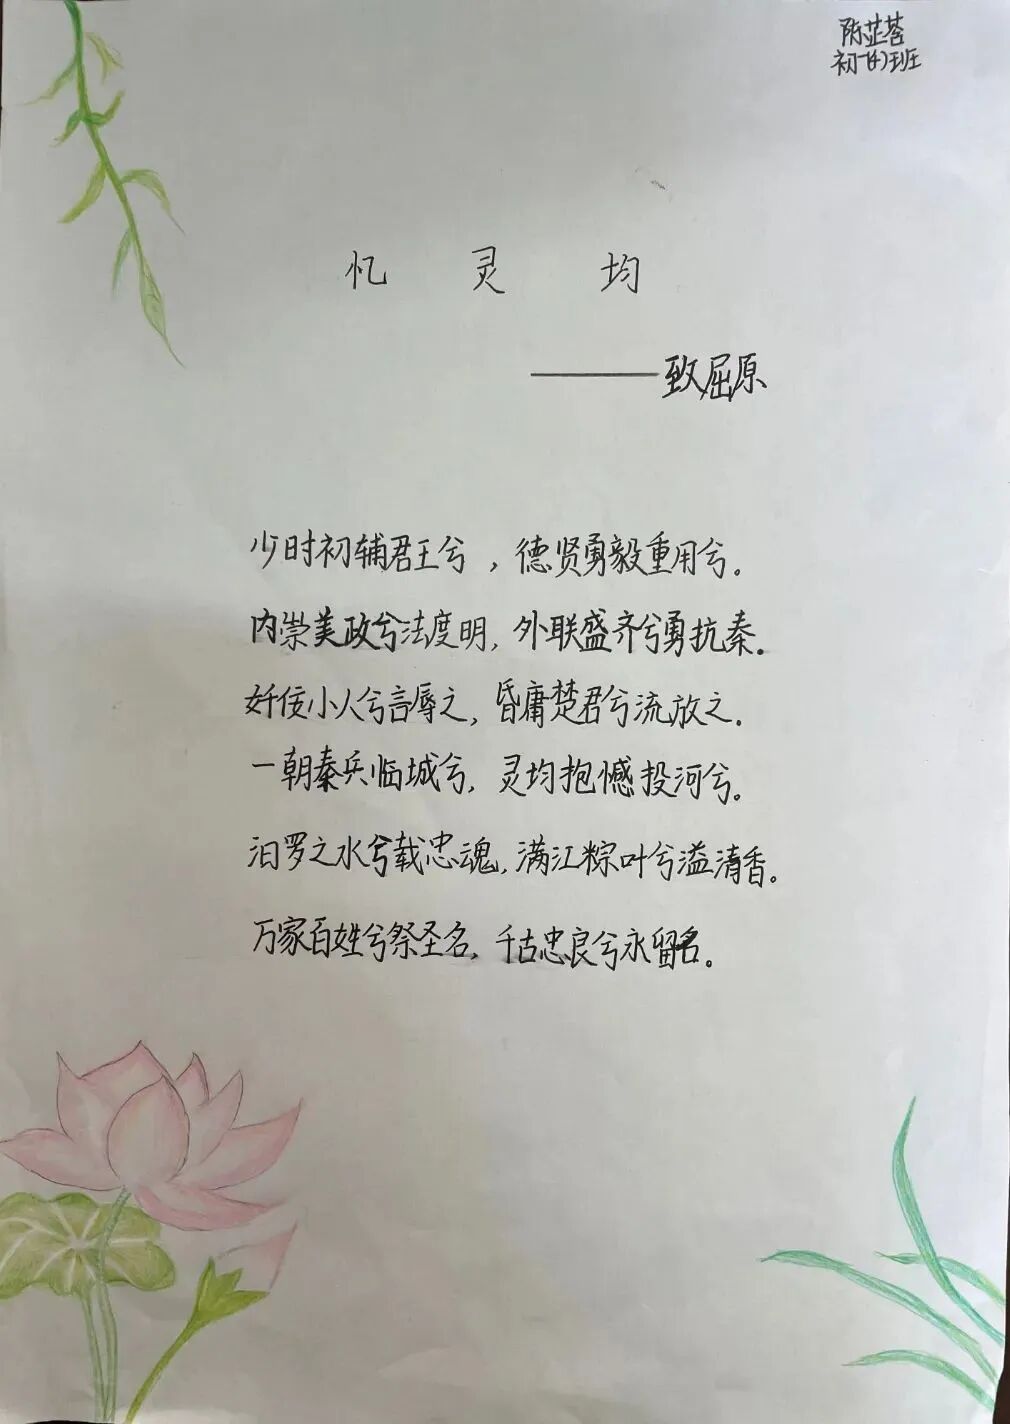 陈芷荟
初一(4)班
忆灵均
——致屈原
少时初辅君王兮，德贤勇毅重用兮。
内崇美政兮法度明，外联盛齐兮勇抗秦。
奸佞小人兮言辱之，昏庸楚君兮流放之。
一朝秦兵临城兮，灵均抱憾投河兮。
汨罗之水兮载忠魂，满江粽叶兮溢清香。
万家百姓兮祭圣名，千古忠良兮永留名。